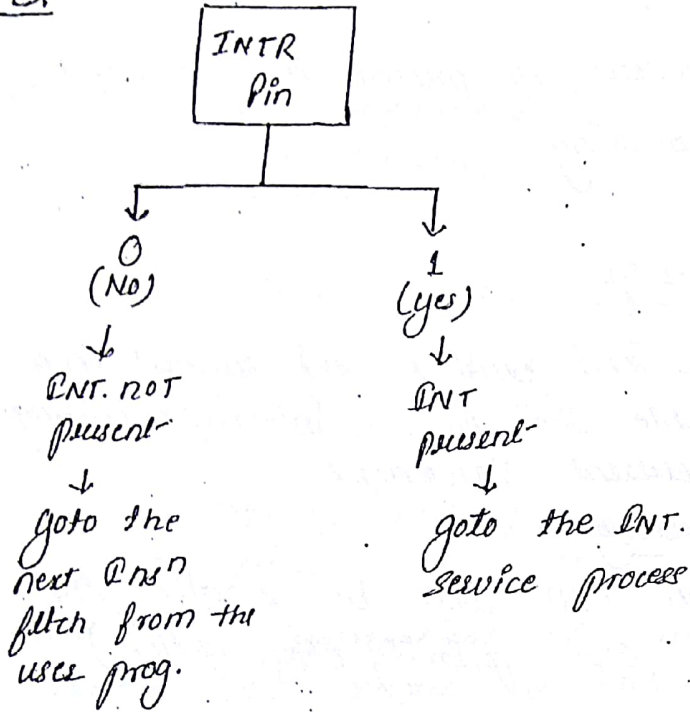 INTR
Pin
0
(No)
INT. not
present
goto the
next Insn
fetch from the
user prog.
1
(yes)
INT
present
goto the INT.
service process